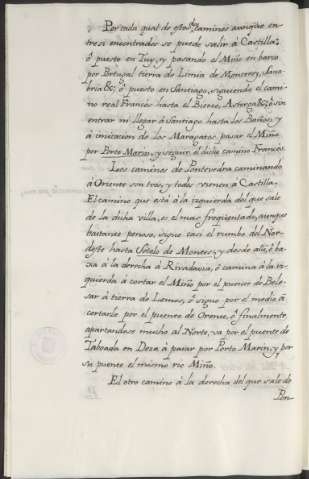 Por cada qual de estos dos caminos aunque en-
tre si encontrados se puede salir à Castilla;
ó puesto en Tuy, y pasando el Miño en barca
por Portugal tierra de Limia de Monterey, Sana-
bria &c; ó puesto en Santiago, siguiendo el cami-
no real Francés hasta el Bierzo, Astorga &c; ó sin
entrar ni llegar à Santiago hasta los Baños, y
à imitacion de los Maragatos, pasar el Miño
por Porto Marin, y seguir el dicho camino Frances.
Los caminos de Pontevedra caminando
à Oriente son tres, y todos vienen à Castilla.
El camino que está à la izquierda del que sale
de la dicha villa, es el mas freqüentado, aunque
bastante penoso, sigue casi el rumbo del Nor-
deste hasta Sotelo de Montes; y desde alli, ó ba-
xa à la derecha à Rivadavia, ó camina à la iz-
quierda à cortar el Miño por el puente de Bele-
sar à tierra de Lemos, ó sigue por el medio à
cortarle por el puente de Orense, ó finalmente,
apartandose mucho al Norte, va por el puente de
Taboada en Deza à pasar por Porto Marin, y por
su puente el mismo rio Miño.
El otro camino à la derecha del que sale de
Pon-